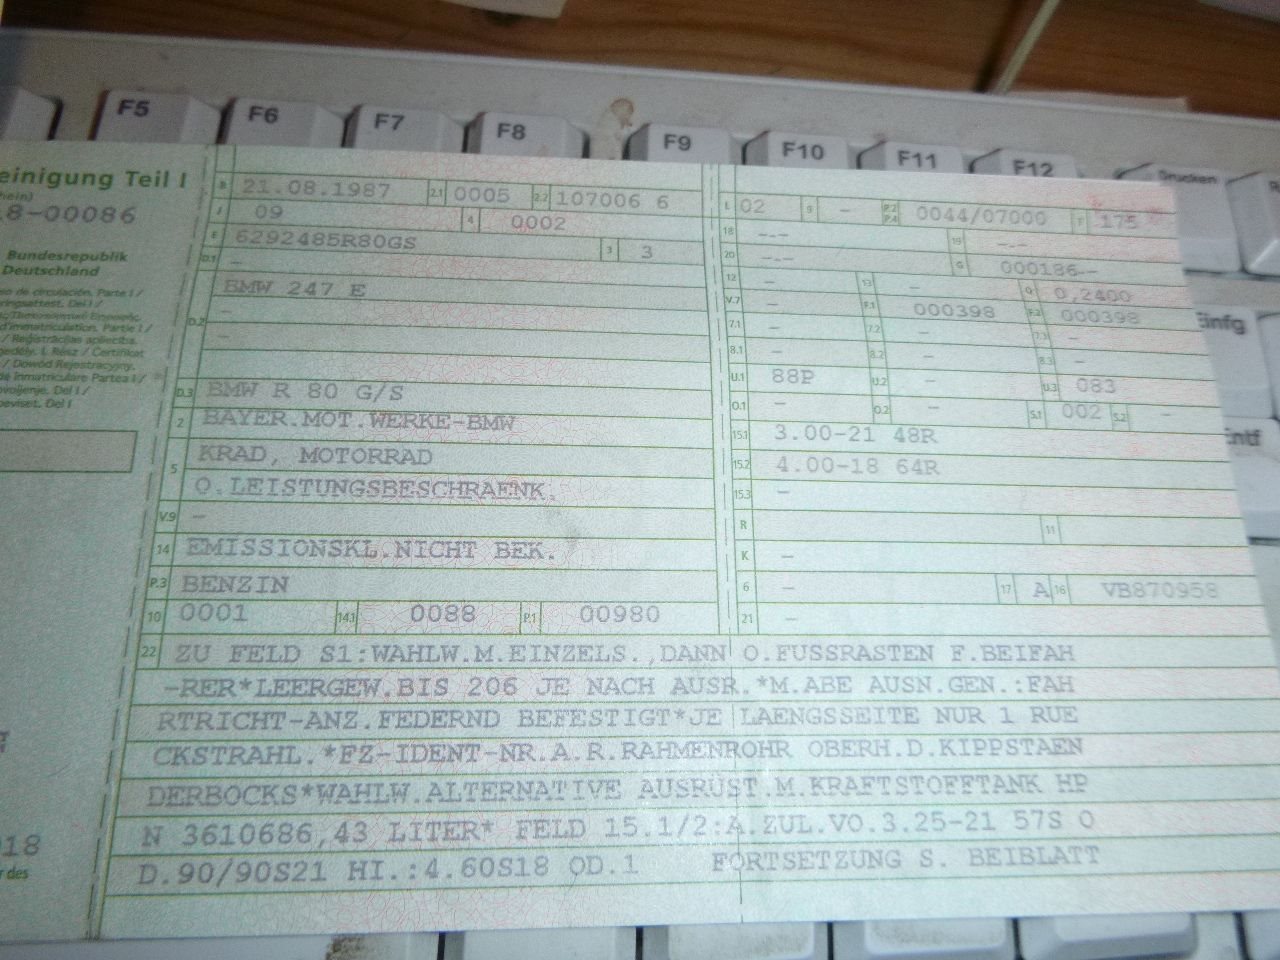 F5 F6 F7 F8 F9 F10 F11 F12 Drucken
einigung Teil I
8-00086
Bundesrepublik
Deutschland
B 21.08.1987 2.1 0005 2.2 107006 6
J 09 4 0002
E 6292485R80GS 3 3
D.1 -
D.2 BMW 247 E
-
-
D.3 BMW R 80 G/S
2 BAYER.MOT.WERKE-BMW
5 KRAD, MOTORRAD
O.LEISTUNGSBESCHRAENK.
V.9 -
14 EMISSIONSKL.NICHT BEK.
P.3 BENZIN
10 0001 14.1 0088 P.1 00980
L 02 9 - P.2 P.4 0044/07000 T 175
18 -.- 19 -.-
20 -.- G 000186--
12 - 13 - Q 0,2400
V.7 - F.1 000398 F.2 000398
7.1 - 7.2 - 7.3 -
8.1 - 8.2 - 8.3 -
U.1 88P U.2 - U.3 083
O.1 - O.2 - S.1 002 S.2 -
15.1 3.00-21 48R
15.2 4.00-18 64R
15.3 -
R 11
K -
6 - 17 A 16 VB870958
21 -
22 ZU FELD S1:WAHLW.M.EINZELS.,DANN O.FUSSRASTEN F.BEIFAH
-RER*LEERGEW.BIS 206 JE NACH AUSR.*M.ABE AUSN.GEN.:FAH
RTRICHT-ANZ.FEDERND BEFESTIGT*JE LAENGSSEITE NUR 1 RUE
CKSTRAHL.*FZ-IDENT-NR.A.R.RAHMENROHR OBERH.D.KIPPSTAEN
DERBOCKS*WAHLW.ALTERNATIVE AUSRUST.M.KRAFTSTOFFTANK HP
N 3610686,43 LITER* FELD 15.1/2:A.ZUL.VO.3.25-21 57S O
D.90/90S21 HI.:4.60S18 OD.1 FORTSETZUNG S. BEIBLATT
18
r des
Einfg
Entf